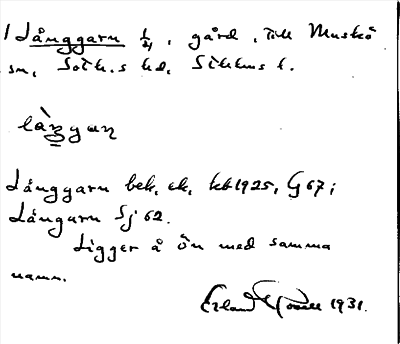 1 Långgarn 1/4, gård, till Muskö
sn, Soth.s hd, Sthlms l.
làngan
Långgarn bek, ek, kb 1925, G 67;
Långarn Sj 62.
Ligger å ön med samma
namn.
Erland 1931.